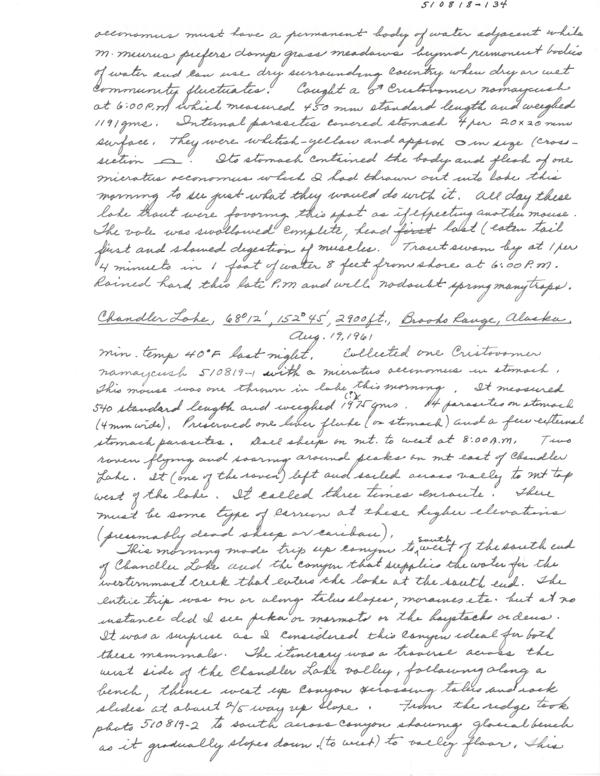 510818-134
oeconomus must have a permanent body of water adjacent while
M. miurus prefers damp grass meadows beyond permanent bodies
of water and can use dry surrounding country when dry or wet
community fluctuates. Caught a ♂ Cristovomer namaycush
at 6:00 P.M. which measured 450 mm standard length and weighed
1191 gms. Internal parasites covered stomach 4 per 20x20 mm
surface. They were whitish-yellow and approx O in size (cross-
section ⌓. Its stomach contained the body and flesh of one
microtus oeconomus which I had thrown out into lake this
morning to see just what they would do with it. All day these
lake trout were favoring this spot as if expecting another mouse.
The vole was swallowed complete, head first last (eaten tail
first and showed digestion of muscles. Trout swam by at 1 per
4 minuets in 1 foot of water 8 feet from shore at 6:00 P.M.
Rained hard this late P.M and will no doubt spring many traps.
Chandler Lake, 68°12', 152°45', 2900 ft., Brooks Range, Alaska.
Aug. 19, 1961
Min. temp 40°F last night. Collected one Cristovomer
namaycush 510819-1 with a microtus oeconomus in stomach.
This mouse was one thrown in lake this morning. It measured
540 standard length and weighed 1975 gms. (?) 14 parasites on stomach
(4 mm wide). Preserved one liver fluke (on stomach) and a few external
stomach parasites. Dall sheep on mt. to west at 8:00 A.M. Two
raven flying and soaring around peaks on mt east of Chandler
Lake. It (one of the raven) left and sailed across valley to mt top
west of the lake. It called three times enroute. There
must be some type of carrion at these higher elevations
(presumably dead sheep or caribou).
This morning made trip up canyon to south west of the south end
of Chandler Lake and the canyon that supplies the water for the
westernmost creek that enters the lake at the south end. The
entire trip was on or along talus slopes, moraines etc. but at no
instance did I see pika or marmots or the haystacks or dens.
It was a surprise as I considered this canyon ideal for both
these mammals. The itinerary was a traverse across the
west side of the Chandler Lake valley, following along a
bench, thence west up canyon crossing talus and rock
slides at about 2/5 way up slope. From the ridge took
photo 510819-2 to south across canyon showing glacial bench
as it gradually slopes down (to west) to valley floor. This